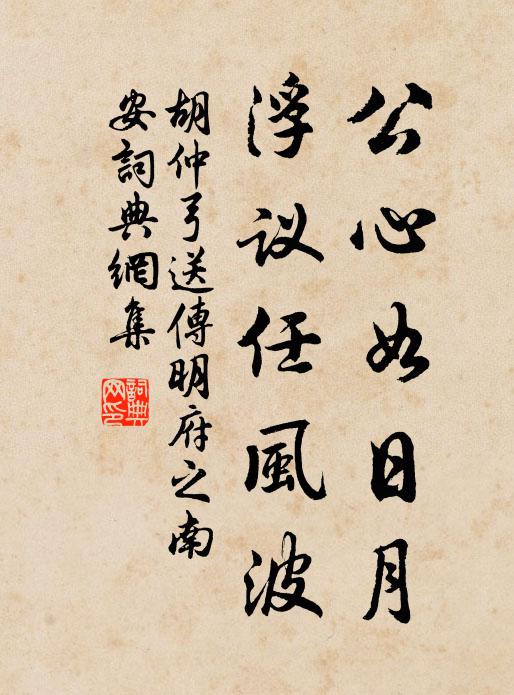 公心如日月
浮议任風波
胡仲弓送傅明府之南
安詞典網集
詞典
网印